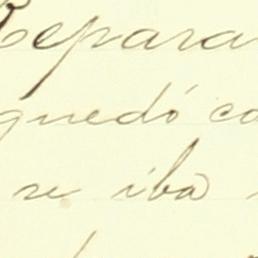 Repara
quedó co
se iba